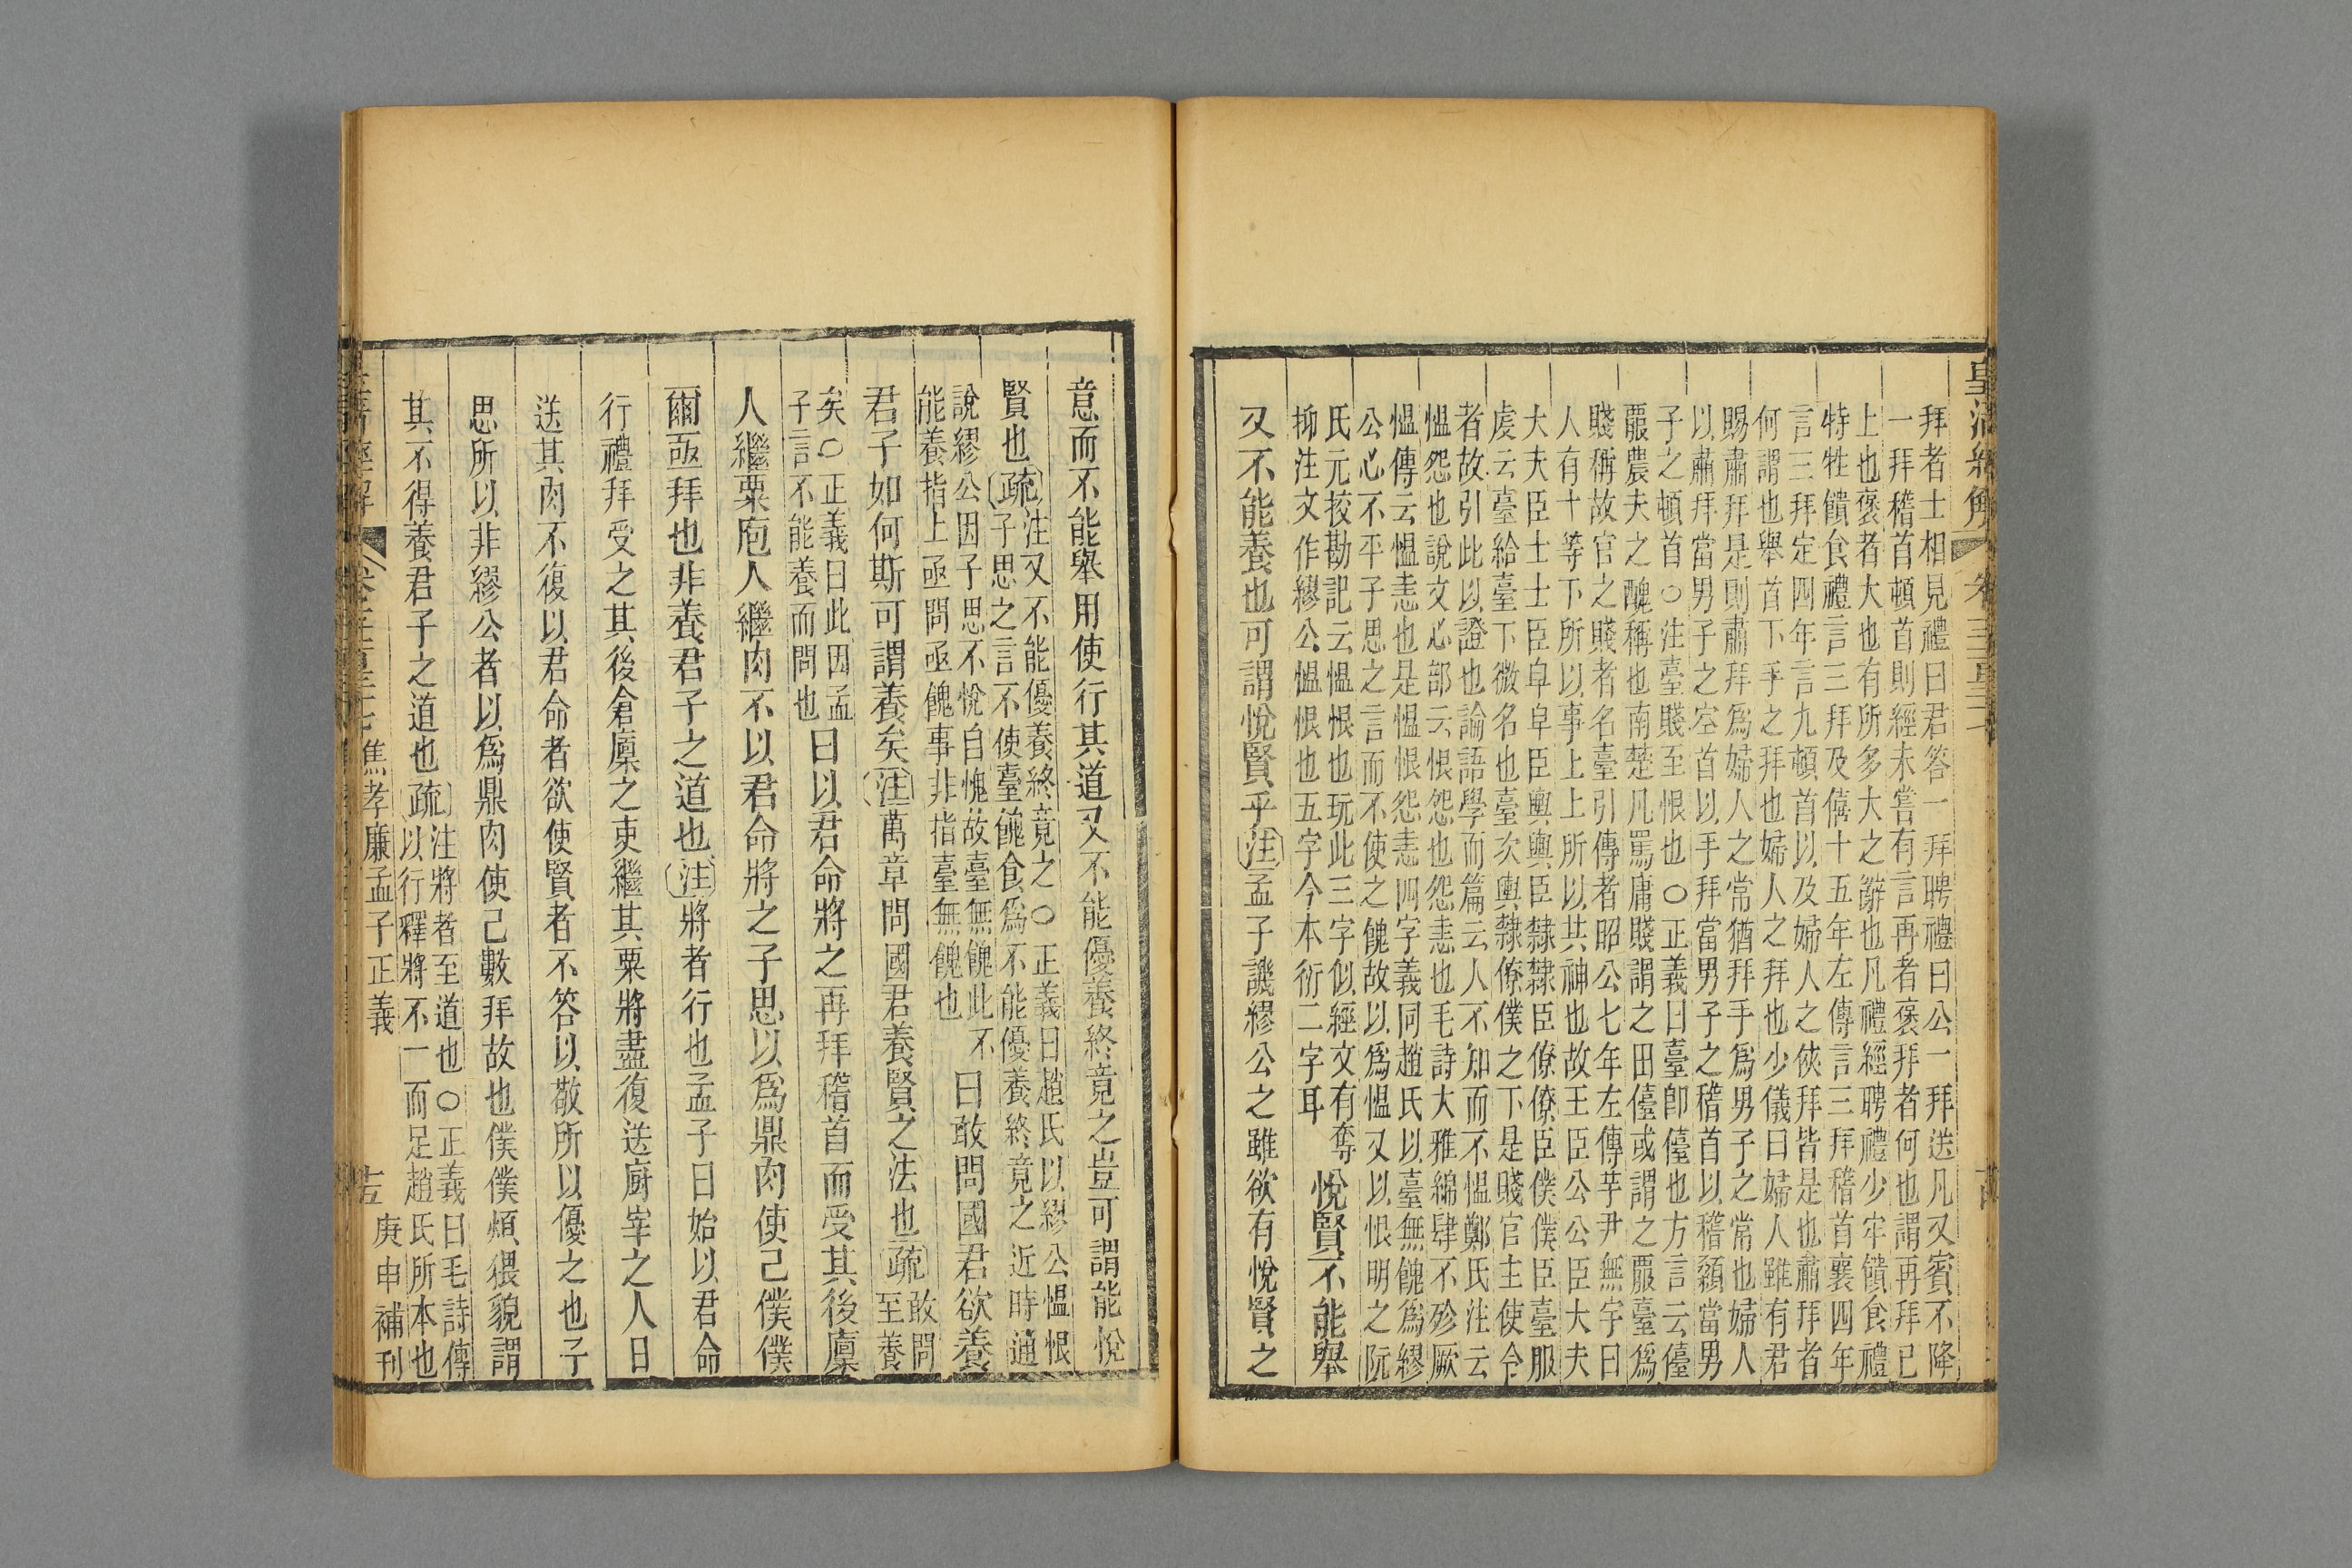 拜者士相見禮曰君答一拜聘禮曰公一拜送凡又賓不降
一拜稽首頓首則經未嘗有言再者褒拜者何也謂再拜已
上也褒者大也有所多大之辭也凡禮經聘禮少牢饋食禮
特牲饋食禮言三拜及僖十五年左傳言三拜稽首襄四年
言三拜定四年言九頓首以及婦人之俠拜皆是也肅拜者
何謂也舉首下手之拜也婦人之拜也少儀曰婦人雖有君
賜肅拜是則肅拜爲婦人之常猶拜手爲男子之常也婦人
以肅拜當男子之空首以手拜當男子之稽首以稽顙當男
子之頓首○注臺賤至恨也○正義曰臺卽儓也方言云儓
䑛農夫之醜稱也南楚凡罵庸賤謂之田儓或謂之䑛臺爲
賤稱故官之賤者名臺引傳者昭公七年左傳芋尹無宇曰
人有十等下所以事上上所以共神也故王臣公公臣大夫
大夫臣士士臣皁皁臣輿輿臣隸隸臣僚僚臣僕僕臣臺服
虔云臺給臺下微名也臺次輿隸僚僕之下是賤官主使令
者故引此以證也論語學而篇云人不知而不慍鄭氏注云
慍怨也說文心部云恨怨也怨恚也毛詩大雅緜肆不殄厥
慍傳云慍恚也是慍恨怨恚四字義同趙氏以臺無餽爲繆
公心不平子思之言而不使之餽故以爲慍又以恨明之阮
氏元挍勘記云慍恨也玩此三字似經文有奪
抑注文作繆公慍恨也五字今本衍二字耳
悅賢不能舉
又不能養也可謂悅賢乎注孟子譏繆公之雖欲有悅賢之
意而不能舉用使行其道又不能優養終竟之豈可謂能悅
賢也疏注又不能優養終竟之○正義曰趙氏以繆公慍恨
子思之言不使臺餽食爲不能優養終竟之近時通
說繆公因子思不悅自愧故臺無餽此不
能養指上亟問亟餽事非指臺無餽也
曰敢問國君欲養
君子如何斯可謂養矣注萬章問國君養賢之法也疏敢問
至養
矣○正義曰此因孟
子言不能養而問也
曰以君命將之再拜稽首而受其後廩
人繼粟庖人繼肉不以君命將之子思以爲鼎肉使己僕僕
爾亟拜也非養君子之道也注將者行也孟子曰始以君命
行禮拜受之其後倉廩之吏繼其粟將盡復送廚宰之人日
送其肉不復以君命者欲使賢者不答以敬所以優之也子
思所以非繆公者以爲鼎肉使己數拜故也僕僕煩猥貌謂
其不得養君子之道也疏注將者至道也○正義曰毛詩傳
以行釋將不一而足趙氏所本也
焦孝廉孟子正義
庚申補刊